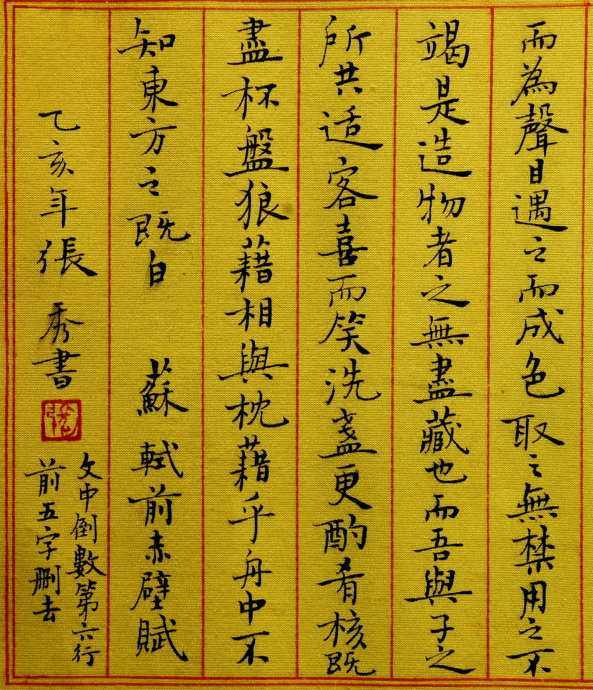 而為聲目遇之而成色取之無禁用之不
竭是造物者之無盡藏也而吾與子之
所共适客喜而笑洗盞更酌肴核既
盡杯盤狼藉相與枕藉乎舟中不
知東方之既白 蘇軾前赤壁賦
乙亥年張秀書
文中倒數第六行
前五字刪去